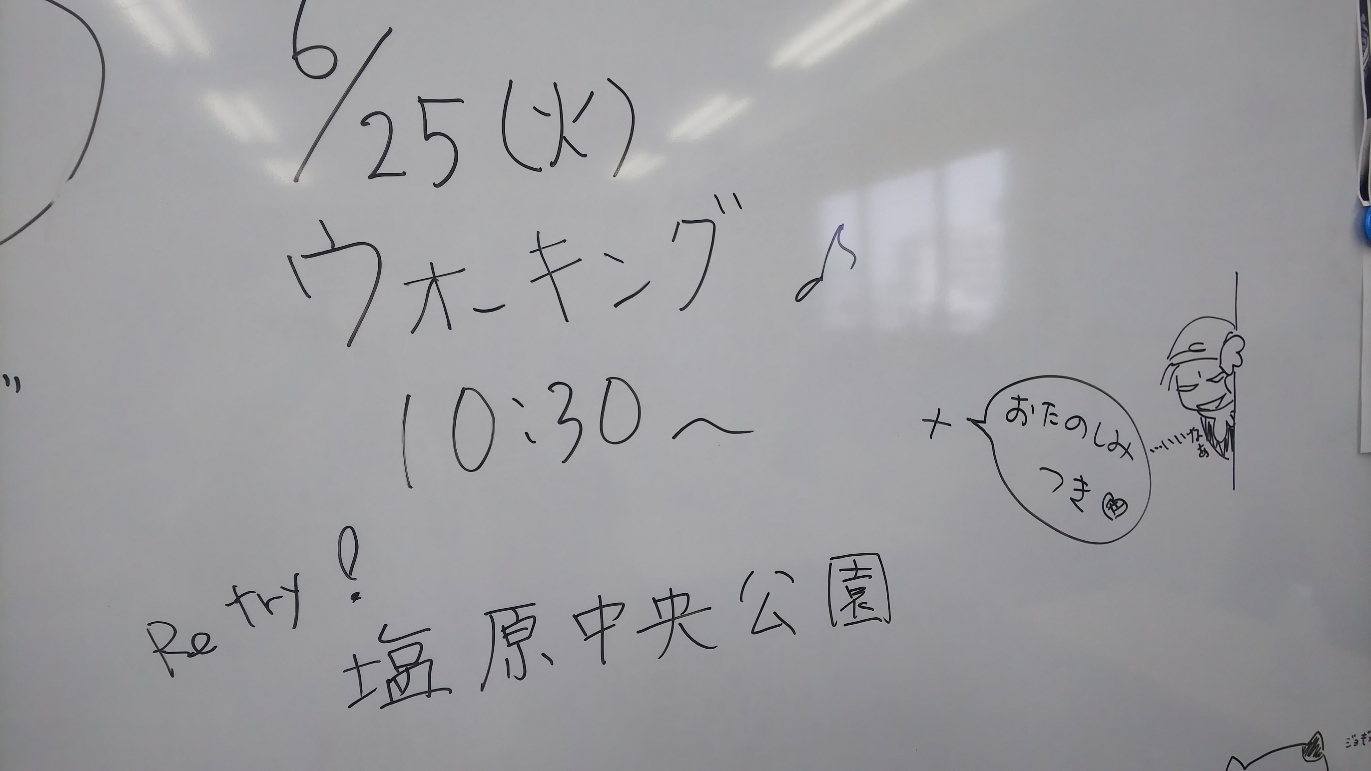 6/25(火)
ウォーキング♪
10:30~
+ おたのしみ
つき♡
…いいなぁ
Re try!
塩原中央公園